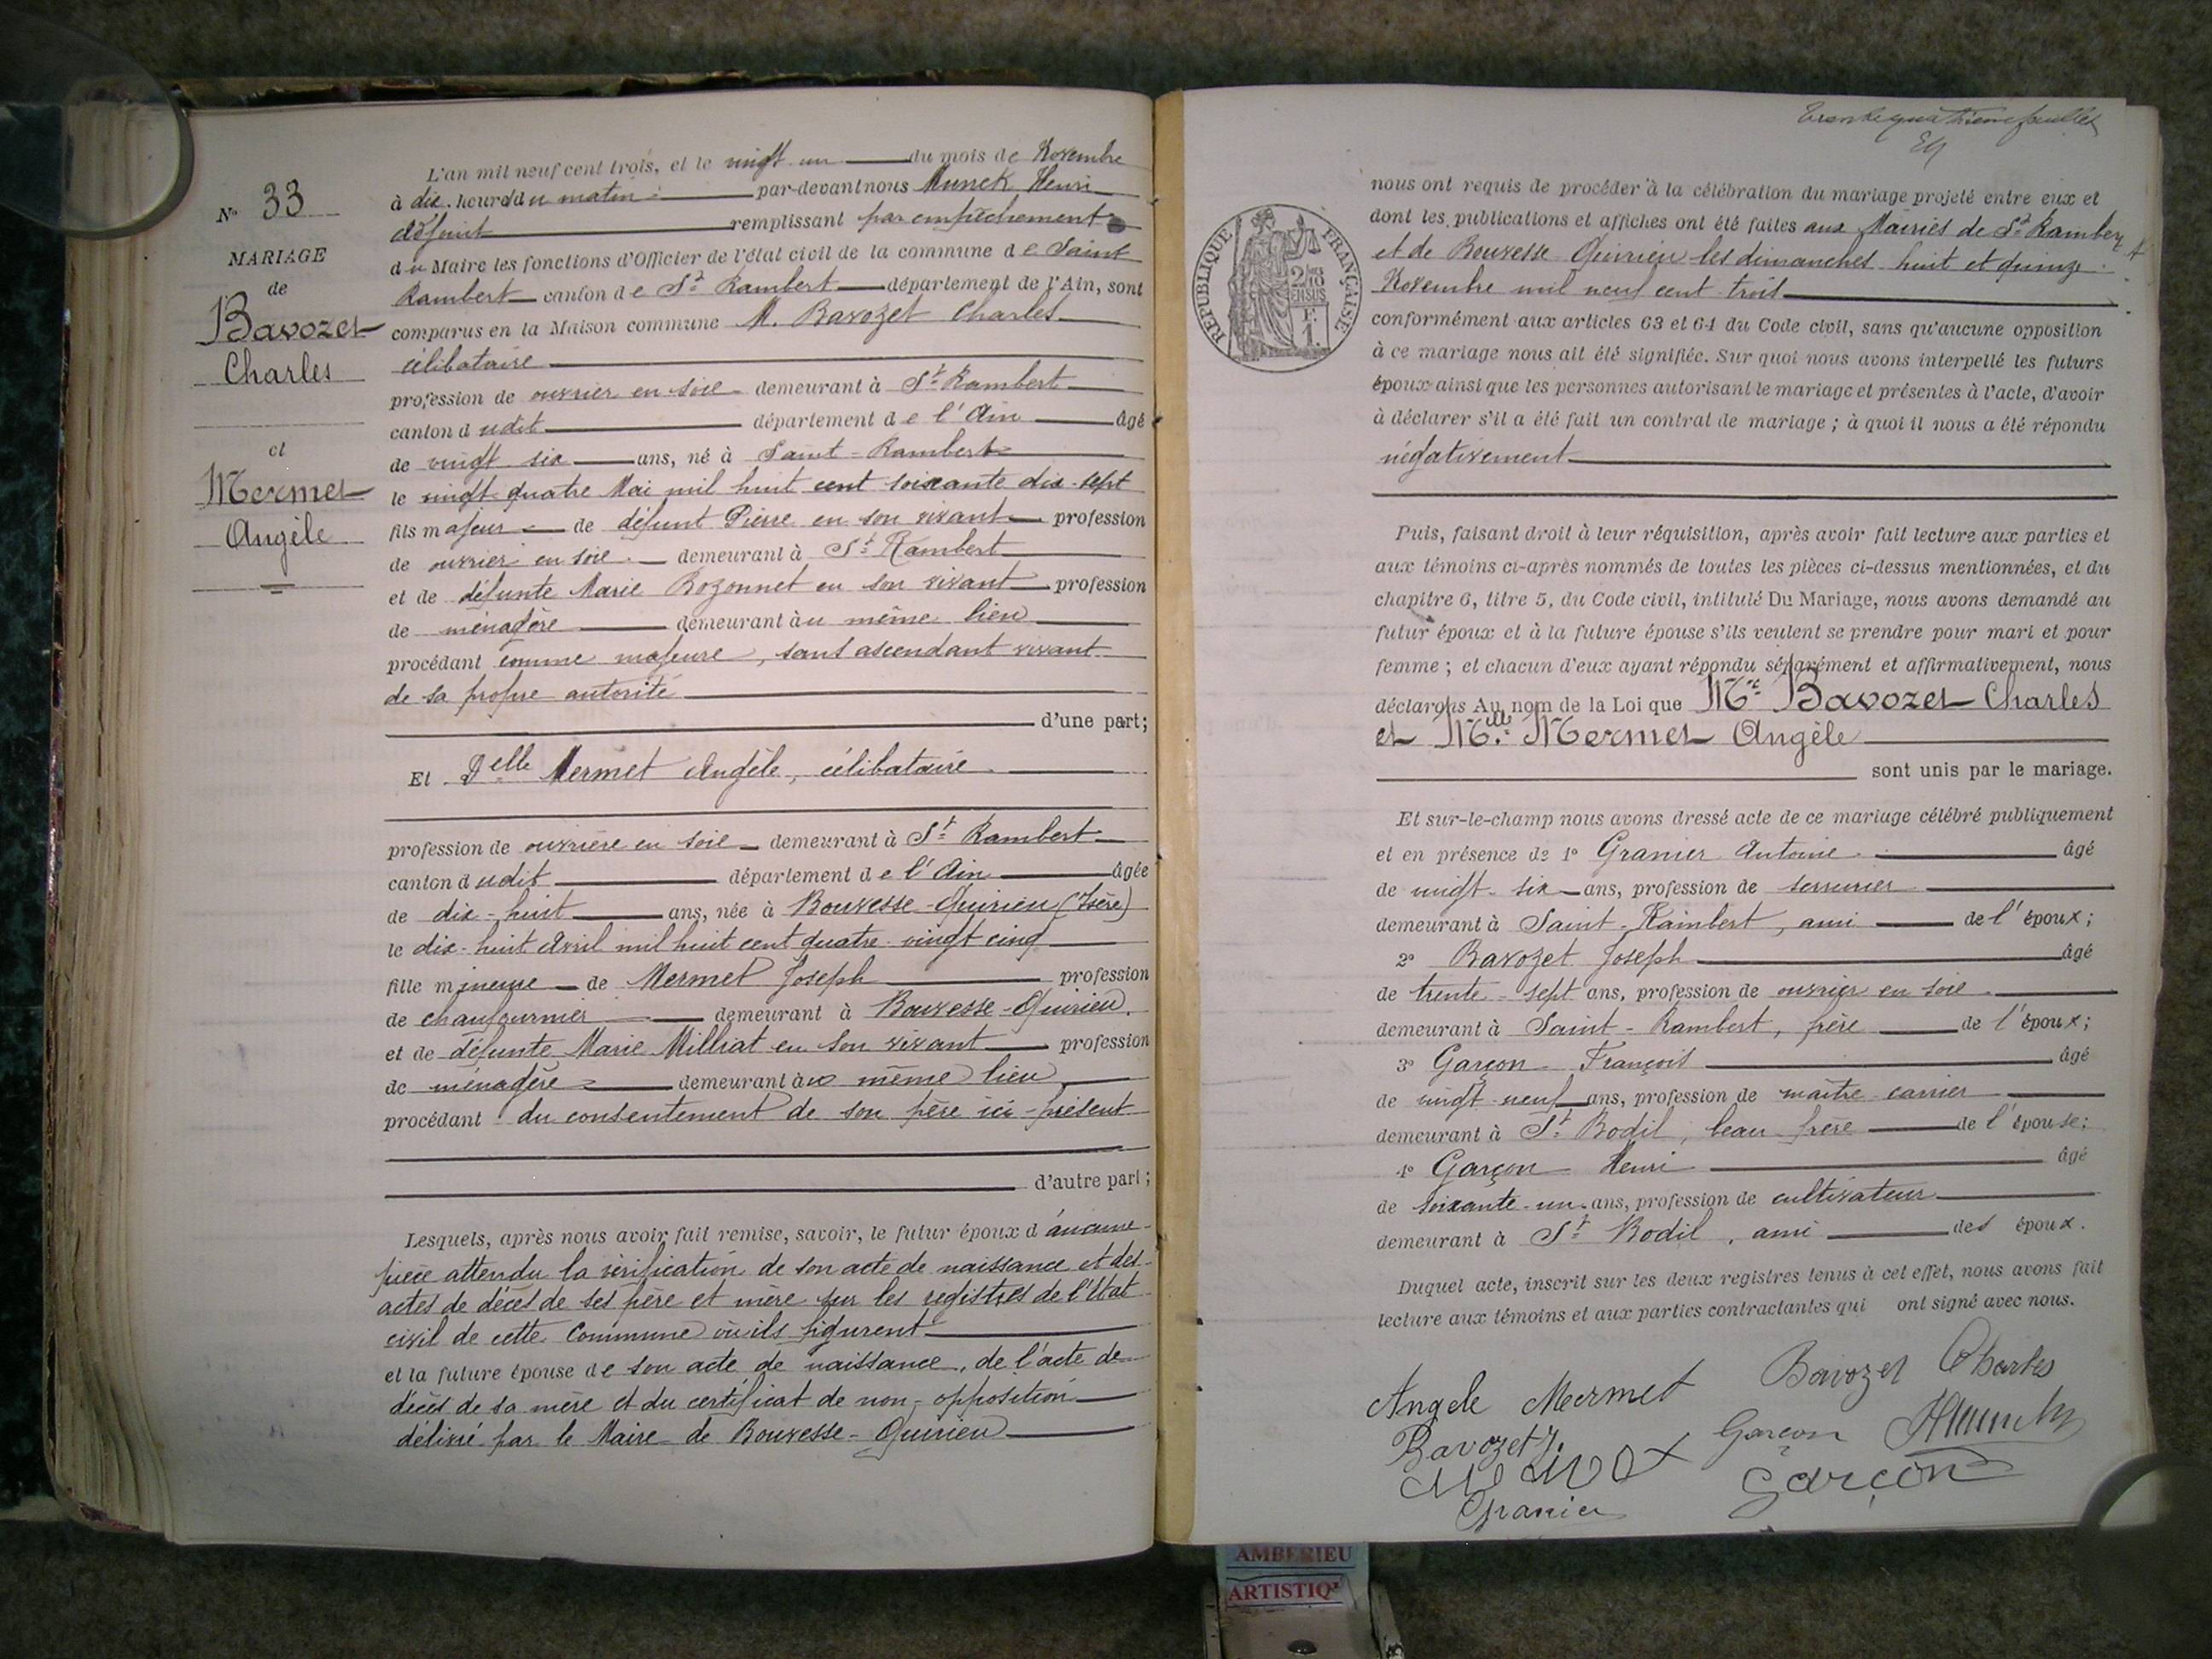 N° 33
MARIAGE
de
Bavozet
Charles
et
Mermet
Angèle
L'an mil neuf cent trois, et le vingt un du mois de Novembre
à dix heures du matin par-devant nous Munck Henri
adjoint remplissant par empêchement
du Maire les fonctions d'Officier de l'état civil de la commune de Saint
Rambert canton de St Rambert département de l'Ain, sont
comparus en la Maison commune M. Bavozet Charles
célibataire
profession de ouvrier en soie demeurant à St Rambert
canton dudit département de l'Ain âgé
de vingt six ans, né à Saint-Rambert
le vingt-quatre Mai mil huit cent soixante dix-sept
fils majeur de défunt Pierre en son vivant profession
de ouvrier en soie demeurant à St Rambert
et de défunte Marie Bozonnet en son vivant profession
de ménagère demeurant au même lieu
procédant comme majeure, sans ascendant vivant
de sa propre autorité
d'une part;
Et Delle Mermet Angèle, célibataire
profession de ouvrière en soie demeurant à St Rambert
canton dudit département de l'Ain âgée
de dix-huit ans, née à Bouvesse-Quirieu (Isère)
le dix-huit Avril mil huit cent quatre-vingt cinq
fille mineure de Mermet Joseph profession
de chaufournier demeurant à Bouvesse-Quirieu
et de défunte Marie Milliat en son vivant profession
de ménagère demeurant au même lieu
procédant du consentement de son père ici-présent
d'autre part;
Lesquels, après nous avoir fait remise, savoir, le futur époux d'aucune
pièce attendu la vérification de son acte de naissance et des
actes de décès de ses père et mère sur les registres de l'Etat
civil de cette Commune où ils figurent
et la future épouse de son acte de naissance, de l'acte de
décès de sa mère et du certificat de non-opposition
délivré par le Maire de Bouvesse-Quirieu
Trente quatrième feuillet
RÉPUBLIQUE FRANÇAISE
nous ont requis de procéder à la célébration du mariage projeté entre eux et
dont les publications et affiches ont été faites aux Mairies de St Rambert
et de Bouvesse Quirieu les dimanches huit et quinze
Novembre mil neuf cent trois
conformément aux articles 63 et 64 du Code civil, sans qu'aucune opposition
à ce mariage nous ait été signifiée. Sur quoi nous avons interpellé les futurs
époux ainsi que les personnes autorisant le mariage et présentes à l'acte, d'avoir
à déclarer s'il a été fait un contrat de mariage ; à quoi il nous a été répondu
négativement
Puis, faisant droit à leur réquisition, après avoir fait lecture aux parties et
aux témoins ci-après nommés de toutes les pièces ci-dessus mentionnées, et du
chapitre 6, titre 5, du Code civil, intitulé Du Mariage, nous avons demandé au
futur époux et à la future épouse s'ils veulent se prendre pour mari et pour
femme ; et chacun d'eux ayant répondu séparément et affirmativement, nous
déclarons Au nom de la Loi que Mr Bavozet Charles
et Melle Mermet Angèle
sont unis par le mariage.
Et sur-le-champ nous avons dressé acte de ce mariage célébré publiquement
et en présence de 1° Granier Antoine âgé
de vingt-six ans, profession de serrurier
demeurant à Saint-Rambert, ami de l'époux;
2° Bavozet Joseph âgé
de trente-sept ans, profession de ouvrier en soie
demeurant à Saint-Rambert, frère de l'époux;
3° Garçon François âgé
de vingt-neuf ans, profession de maître carrier
demeurant à St Bodil, beau-frère de l'épouse;
4° Garçon Henri âgé
de soixante-un ans, profession de cultivateur
demeurant à St Bodil, ami des époux.
Duquel acte, inscrit sur les deux registres tenus à cet effet, nous avons fait
lecture aux témoins et aux parties contractantes qui ont signé avec nous.
Angele Mermet Bavozet Charles
Bavozet J. Garçon HMunck
Garçon
Granier
AMBERIEU
ARTISTIQ